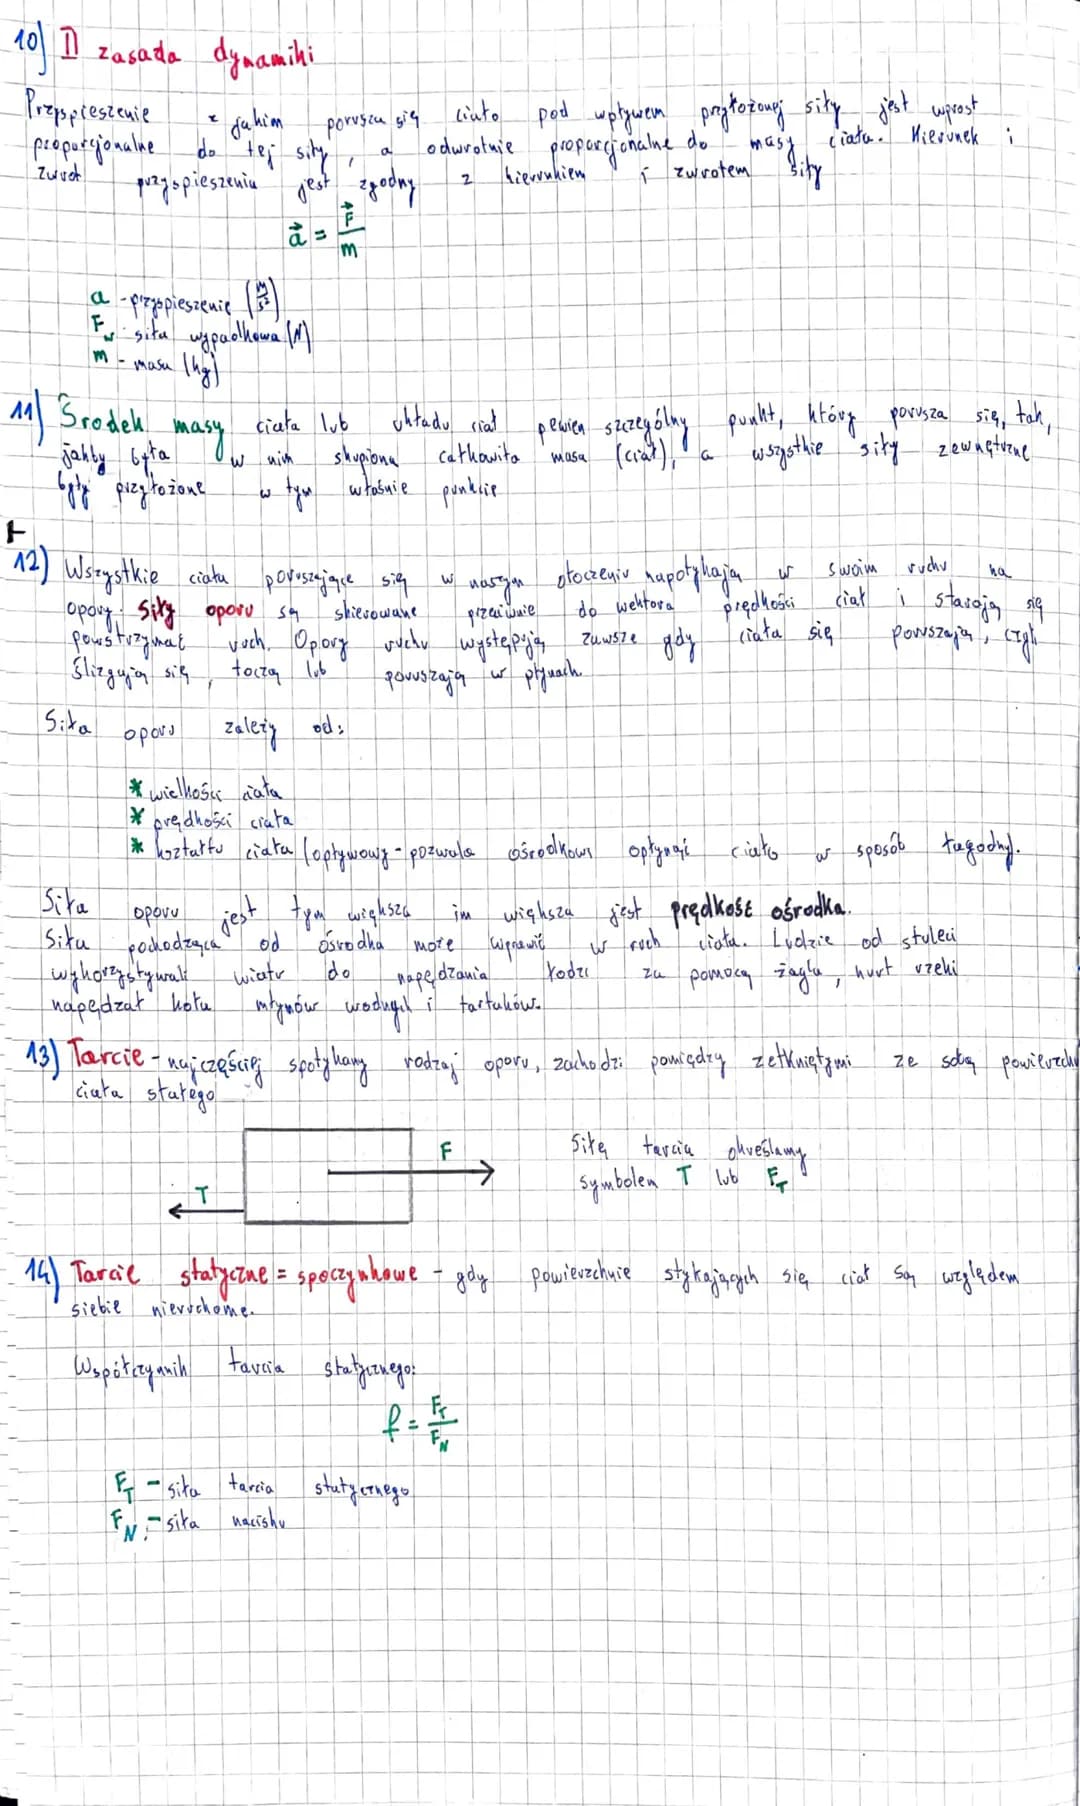 10) II zasada dynamiki
Przyspieszenie z jakim porusza się ciało pod wpływem przyłożonej siły jest wprost
proporcjonalne do tej siły, a odwrotnie proporcjonalne do masy ciała. Kierunek i
zwrot przyspieszenia jest zgodny z kierunkiem i zwrotem siły
a⃗ = F⃗/m
a - przyspieszenie (m/s²)
Fw - siła wypadkowa (N)
m - masa (kg)
11) Środek masy ciała lub układu ciał pewien szczególny punkt, który porusza się, tak,
jakby była w nim skupiona całkowita masa (ciał), a wszystkie siły zewnętrzne
były przyłożone w tym właśnie punkcie
12) Wszystkie ciała poruszające się w naszym otoczeniu napotykają w swoim ruchu na
opory. Siły oporu są skierowane przeciwnie do wektora prędkości ciał i starają się
powstrzymać ruch. Opory ruchu występują zawsze gdy ciała się poruszają, czyli
ślizgają się, toczą lub poruszają w płynach.
Siła oporu zależy od:
* wielkości ciała
* prędkości ciała
* kształtu ciała (opływowy - pozwala ośrodkowi opłynąć ciało w sposób łagodny).
Siła oporu jest tym większa im większa jest prędkość ośrodka.
Siła pochodząca od ośrodka może wprawić w ruch ciała. Ludzie od stuleci
wykorzystywali wiatr do napędzania łodzi za pomocą żagla, nurt rzeki
napędzał koła młynów wodnych i tartaków.
13) Tarcie - najczęściej spotykany rodzaj oporu, zachodzi pomiędzy zetkniętymi ze sobą powierzch
ciała stałego
F
T
Siłę tarcia określamy
symbolem T lub FT
14) Tarcie statyczne = spoczynkowe - gdy powierzchnie stykających się ciał są względem
siebie nieruchome.
Współczynnik tarcia statycznego:
f = FT/FN
FT - siła tarcia statycznego
FN - siła nacisku